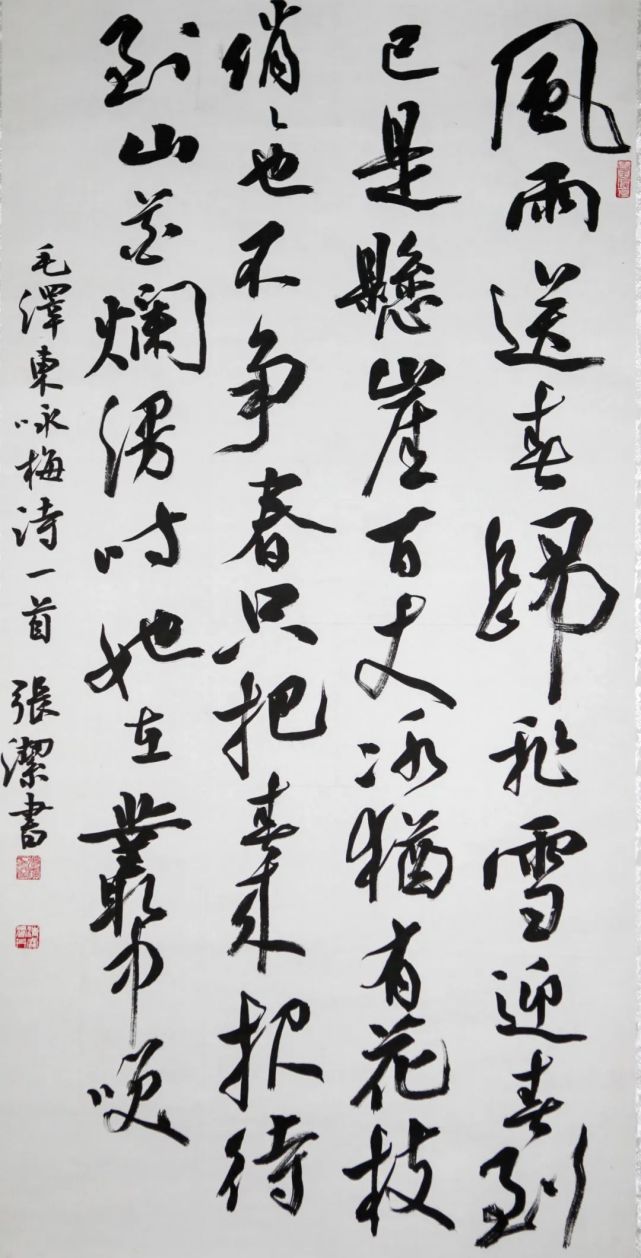 風雨送春歸飛雪迎春到
已是懸崖百丈冰猶有花枝
俏〻也不争春只把春来报待
到山花爛漫时她在叢中咲
毛澤東咏梅诗一首 張潔書